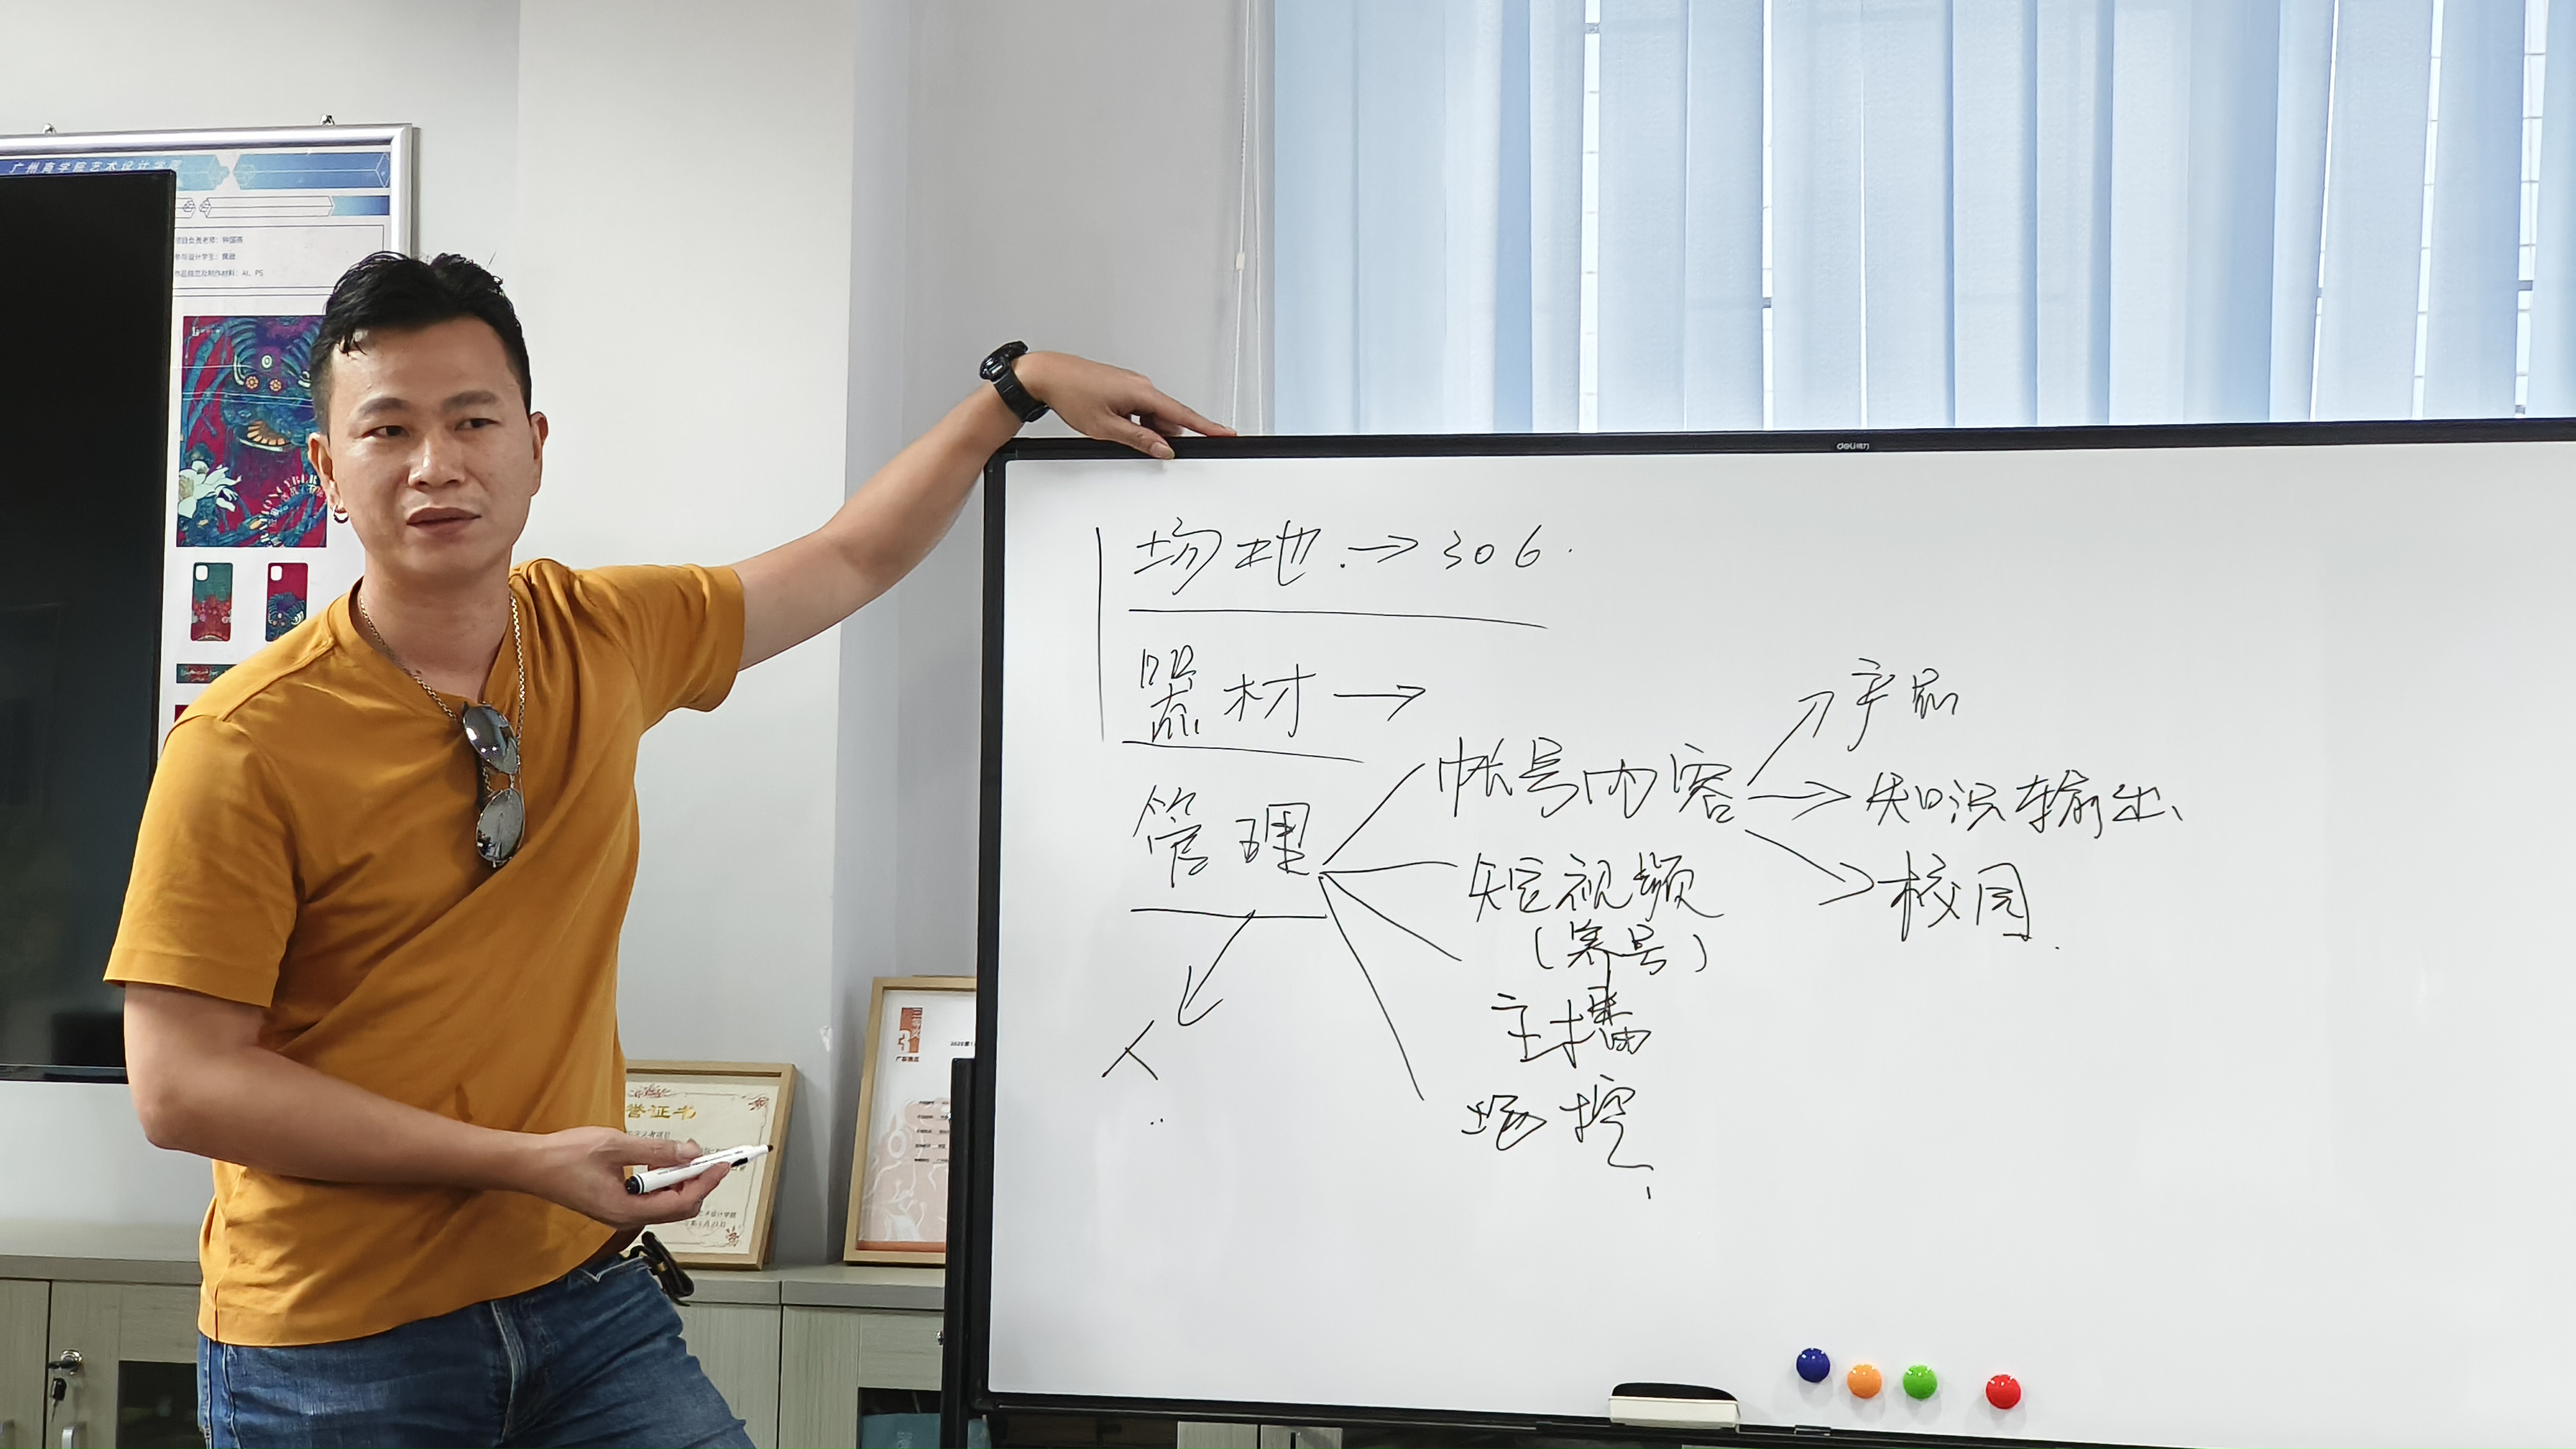 广州商学院艺术设计学院
项目负责老师：钟国燕
参与设计学生：
作品规范及制作材料：AI、PS
deli得力
场地.→306.
器材→
管理
人
帐号内容
短视频
(养号)
主播
场控
产品
知识输出、
校园.
誉证书